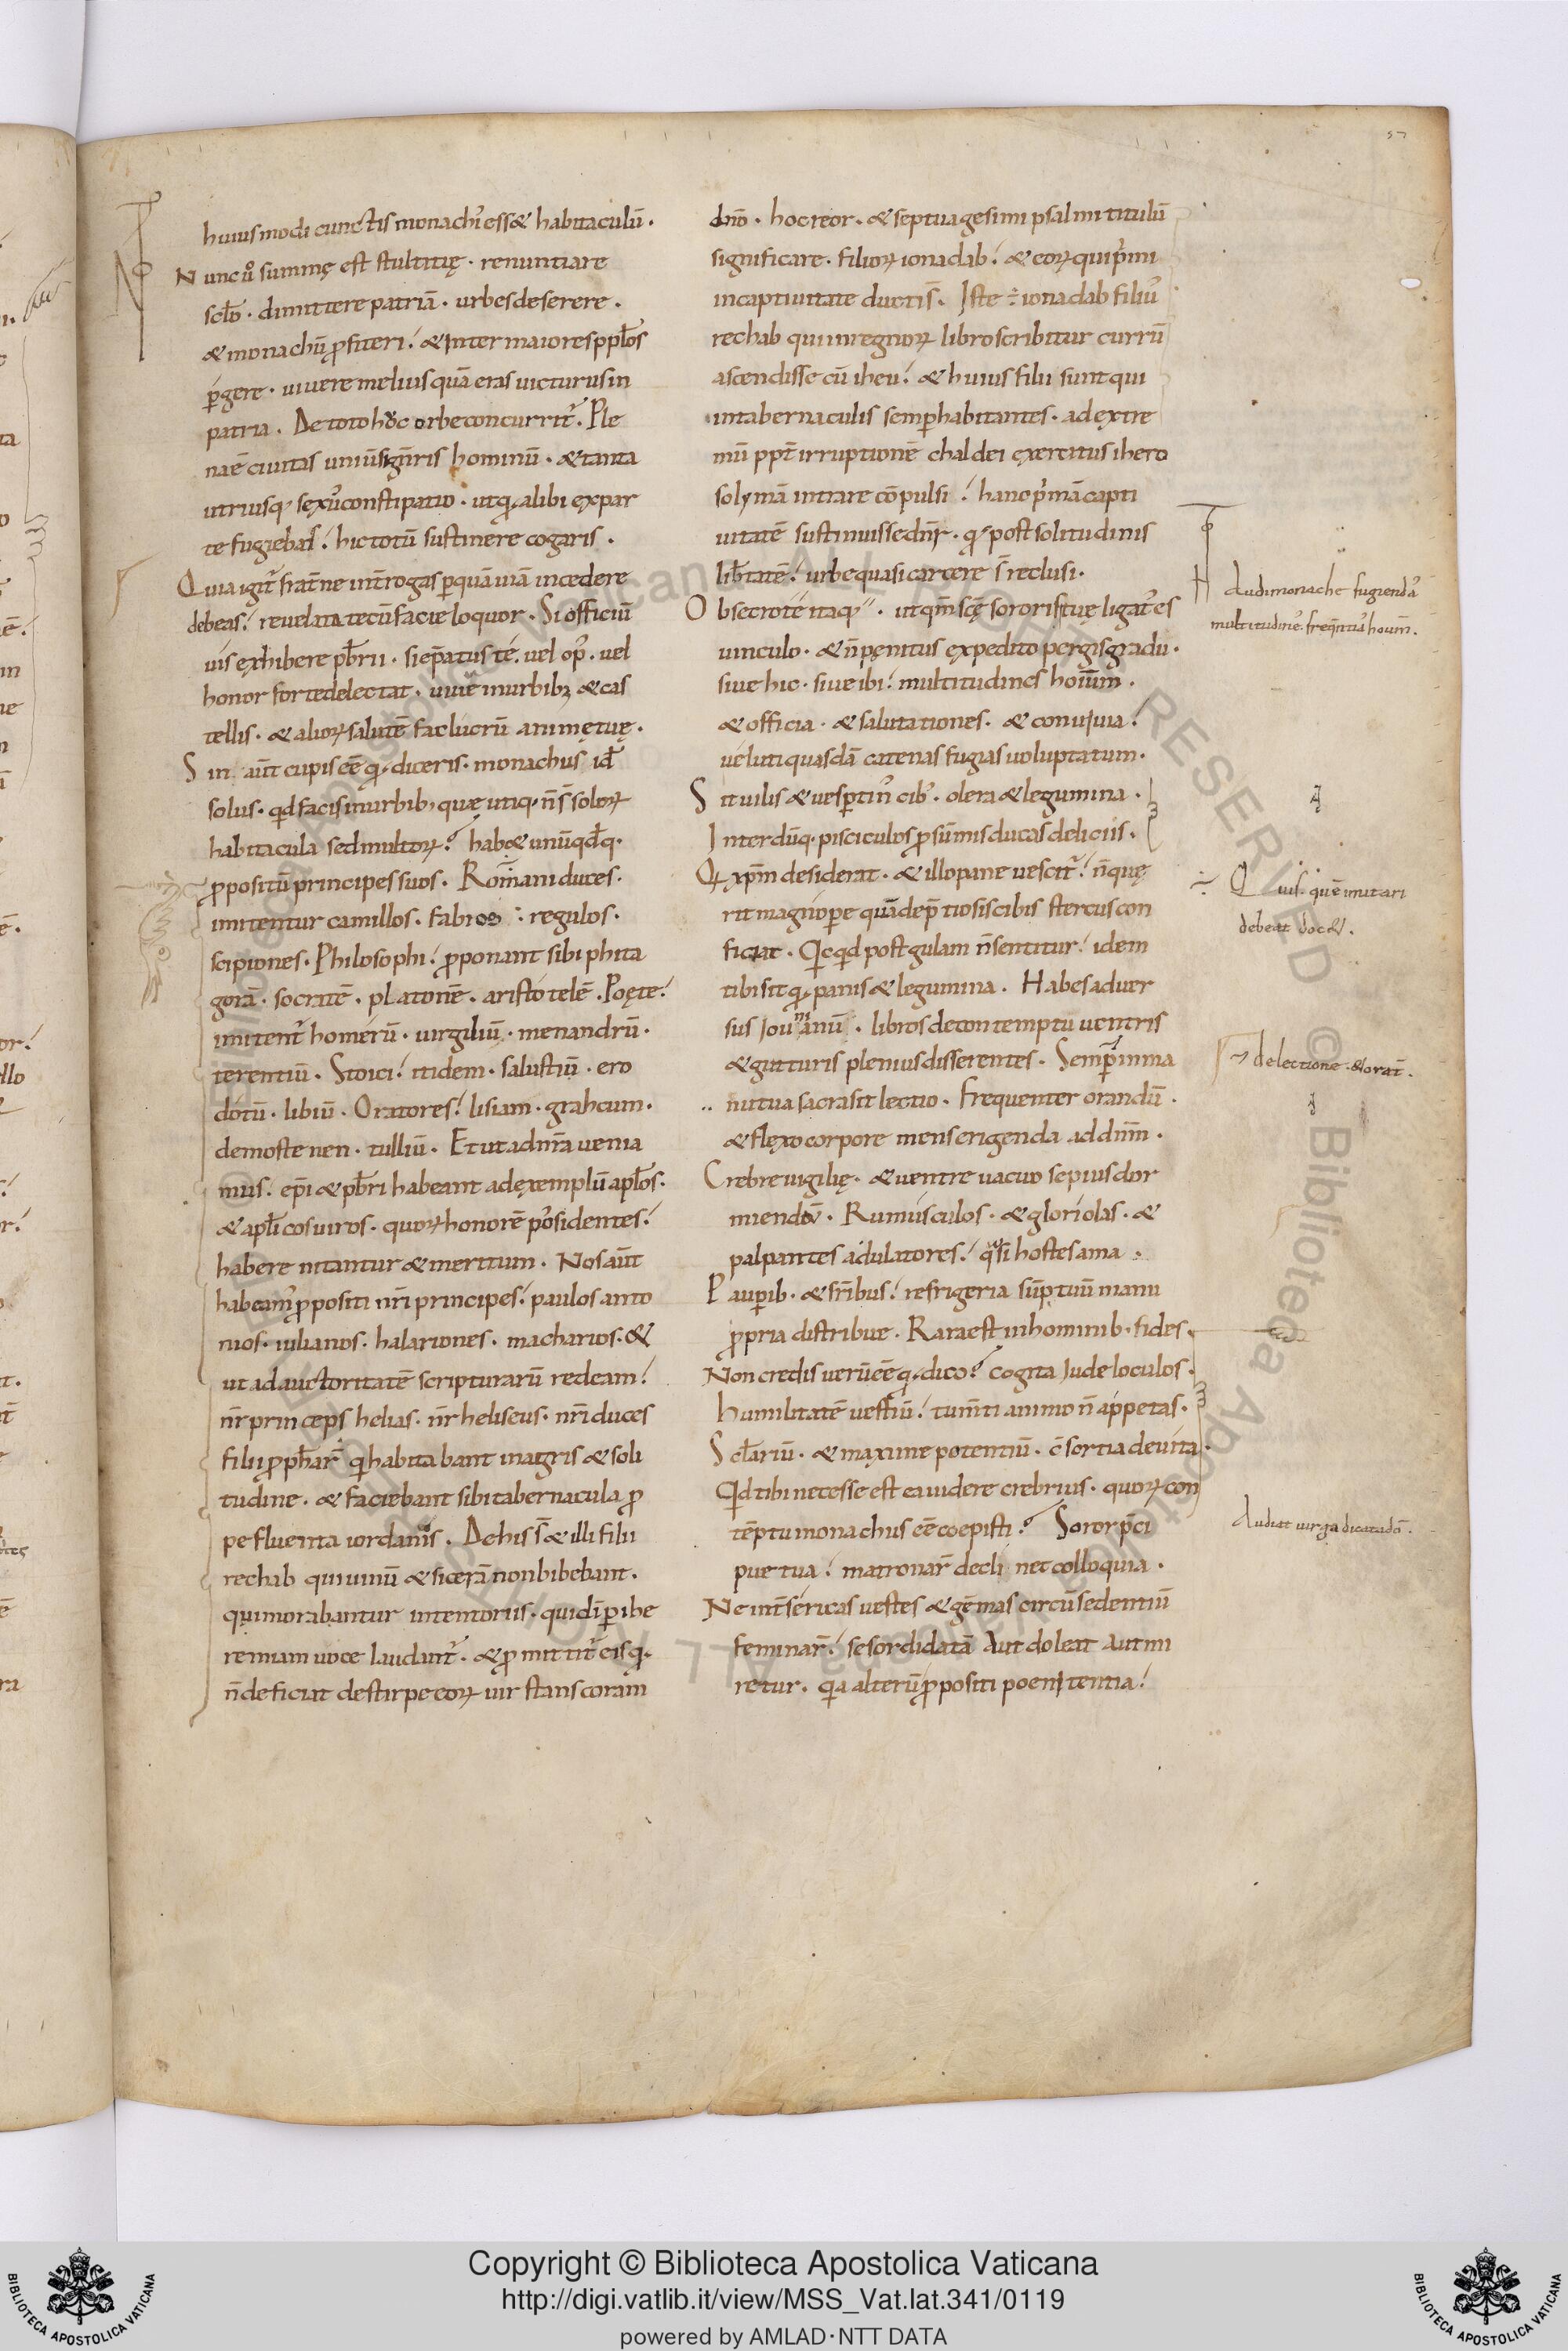 57
huiusmodi cunctis monachi essꝫ habitaculū.
Nunc uº summę est stultitię. renuntiare
sc̄lo. dimittere patriā. urbes deserere.
& monachū ꝓfiteri! & Inter maiores ppl̄os
ꝑgere. uiuere melius quā eras uicturus in
patria. De toto hoc orbe concurrit᷑. Ple
na ē ciuitas uniūsi gn̄ris hominū. & tanta
utriusq; sexus constipatio. ut qđ alibi ex par
te fugiebas! hic totū sustinere cogaris.
Quia igit᷑ frat̄ne int̄rogas ꝑ quā uiā incedere
debeas! reuelata tecū facie loquor. Si officiū
uis exhibere pb̄rii. si ep̄atus te. uel op᷒. uel
honor forte delectat. uiue in urbibꝫ & cas
tellis. & alioꝝ salutē fac lucrū animę tuę.
Sin aūt cupis eē qđ diceris. monachus id ē
solus. qd facis in urbib; quę utiq; n̄ s̄ soloꝝ
habitacula sed multoꝝ? habꝫ unūqđq;
ꝓpositū principes suos. Romani duces.
imitentur camillos. fabricios. regulos.
scipiones. Philosophi! ꝓponant sibi phita
gorā. socratē. platonē. aristotelē. Poęte!
imitent᷑ homerū. uirgiliū. menandrū.
terentiū. Stoici! itidem. salustiū. ero
dotū. libiū. Oratores! lisiam. grahcum.
demostenen. tulliū. Et ut ad nr̄a uenia
mus. ep̄i & pb̄ri habeant ad exemplū apl̄os.
& apl̄icos uiros. quoꝝ honorē possidentes!
habere nitantur & meritum. Nos aūt
habeam᷒ ꝓpositi nr̄i principes! paulos anto
nios. iulianos. halariones. macharios. &
ut ad auctoritatē scripturarū redeam!
nr̄ princeps helias. nr̄ heliseus. nr̄i duces
filii ꝓph̄ar᷑ qi habitabant in agris & soli
tudine. & faciebant sibi tabernacula ꝓ
pe fluenta iordanis. De his s̄ & illi filii
rechab qui uinū & sicerā non bibebant.
qui morabantur in tentoriis. qui dī ꝑ ihe
remiam uoce laudant᷑. & ꝓmittit᷑ eis qđ
n̄ deficiat de stirpe eoꝝ uir stans coram
dn̄o. hoc reor. & septuagesimi psalmi titulū
significare. filioꝝ ionadab! & eoꝝ qui p̄mi
in captiuitate ducti s̄. Iste ÷ ionadab fili᷒
rechab qui in regnoꝝ libro scribitur currū
ascendisse cū iheu! & huius filii sunt qui
in tabernaculis semꝑ habitantes. ad extre
mū ppt̄ irruptionē chaldei exercitus ihero
solymā intrare cōpulsi! hanc p̄mā capti
uitatē sustinuisse dn̄r. qđ post solitudinis
lib̄tatē! urbe quasi carcere s̄ reclusi.
Obsecro te itaq;. ut qm̄ scę sororis tuę ligat᷒ es
uinculo. & n̄ pęnitus expedito pergis gradu.
siue hic. siue ibi! multitudines hoīum.
& officia. & salutationes. & conuiuia!
ueluti quasdā catenas fugias uoluptatum.
Sit uilis & uesꝑtin᷒ cib᷒. olera & legumina.
Interdūq; pisciculos ꝓ sūmis ducas deliciis.
Qi xp̄m desiderat. & illo pane uescit᷑! n̄ quę
rit magnopere quā de p̄tiosis cibis stercus con
ficiat. Qicqid post gulam n̄ sentitur! idem
tibi sit qđ panis & legumina. Habes aduer
sus Iouinianū. libros de contemptu uentris
& gutturis plenius disserentes. Semꝑ in ma
nu tua sacra sit lectio. Frequenter orandū.
& flexo corpore mens erigenda ad dn̄m.
Crebre uigilię. & uentre uacuo sepius dor
miendū. Rumusculos. & gloriolas. &
palpantes adulatores! qasi hostes ama.
Pauꝑib. & fr̄ibus! refrigeria sūptuū manu
ꝓpria distribue. Rara est in hominib. fides.
Non credis uerū eē qđ dico? cogita Iude loculos.
Humilitatē uestiū! tum̄ti animo n̄ appetas.
Sc̄lariū. & maxime potentiū. c̄sortia deuita.
Qid tibi necesse est ea uidere crebrius. quoꝝ con
tēptu monachus eē coepisti? Soror p̄ci
pue tua! matronar᷑ declinet colloquia.
Ne int̄ sericas uestes & gēmas circūsedentiū
feminar᷑! se sordidatā Aut doleat Aut mi
retur. qia alterū ꝓpositi poenitentia!
Audi monache fugiendā
multitudinē. freq̄ntiā hoium̄.
Quis. quē imitari
debeat docꝫ.
de lectione. & orat̄.
Audiat uirga dicata dō.
Copyright © Biblioteca Apostolica Vaticana
http://digi.vatlib.it/view/MSS_Vat.lat.341/0119
powered by AMLAD·NTT DATA
BIBLIOTECA APOSTOLICA VATICANA
BIBLIOTECA APOSTOLICA VATICANA